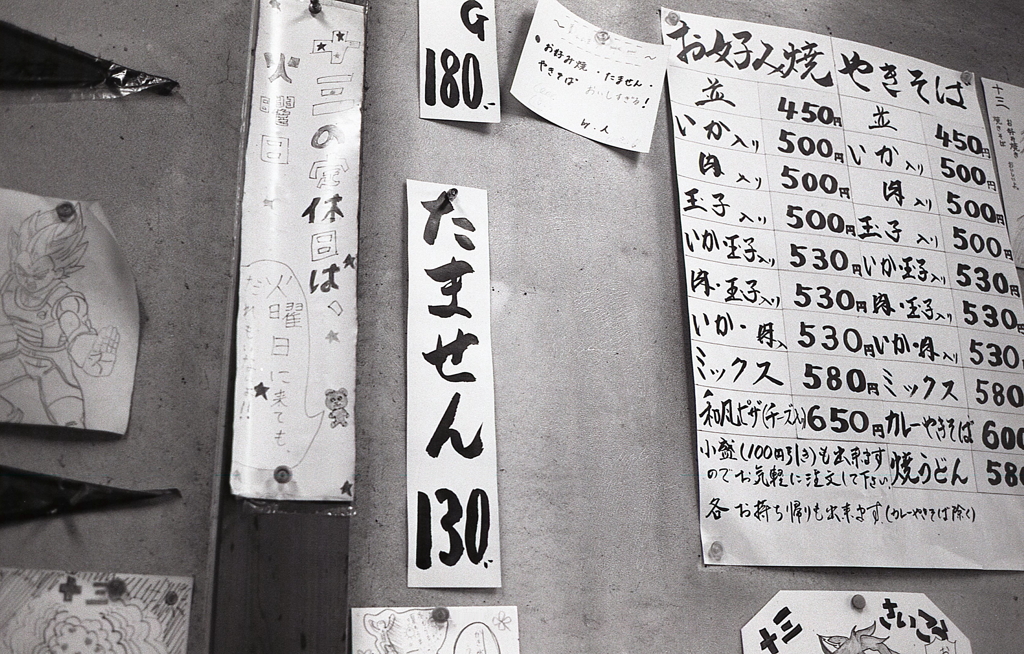 十三の定休日は、
火曜日
火曜日に来ても、
だれも
G
180.-
お好み焼・たません・
やきそば おいしすぎる!
たません
130.-
お好み焼 やきそば
並 450円 並 450円
いか入り 500円 いか入り 500円
肉入り 500円 肉入り 500円
玉子入り 500円 玉子入り 500円
いか・玉子入り 530円 いか・玉子入り 530
肉・玉子入り 530円 肉・玉子入り 530
いか・肉入 530円 いか・肉入り 530
ミックス 580円 ミックス 580
和風ピザ(チーズ入) 650円 カレーやきそば 600
小盛(100円引き)も出来ます 焼うどん 580
のでお気軽に注文して下さい
各お持ち帰りも出来ます(カレーやきそば除く)
十三
お好み焼き
焼きそば
十三
十三
さいこー